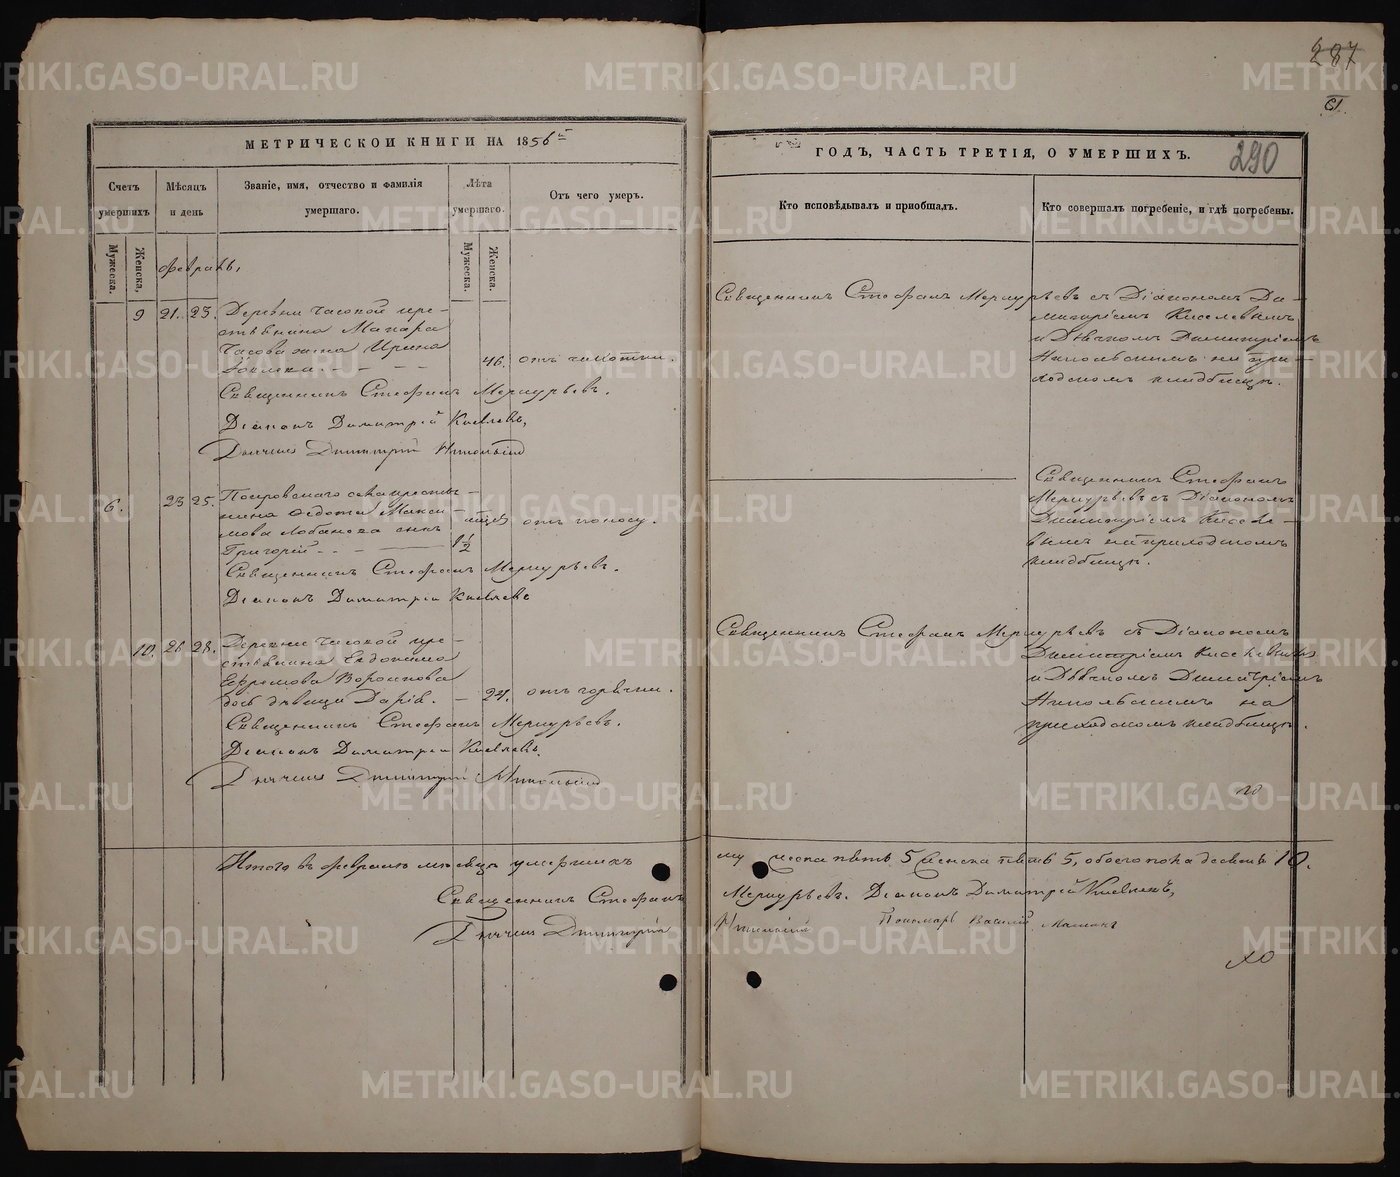 287
290
МЕТРИЧЕСКОЙ КНИГИ НА 1856й
ГОДЪ, ЧАСТЬ ТРЕТІЯ, О УМЕРШИХЪ.
Счетъ умершихъ
Мѣсяцъ и день
Званіе, имя, отчество и фамилія умершаго.
Лѣта умершаго.
Отъ чего умеръ.
Кто исповѣдывалъ и пріобщалъ.
Кто совершалъ погребеніе, и гдѣ погребены.
Мужеска.
Женска,
Мужеска.
Женска.
Февраль,
9 21. 23. Деревни Часовой кре-
стьянина Макара
Часова жена Ирина
46. отъ чахотки.
Священникъ Стефанъ Меркурьевъ.
Діаконъ Димитрій Киселевъ,
Дьячекъ Димитрій Никольскій
Священникъ Стефанъ Меркурьевъ съ Діакономъ Ди-
митріемъ Киселевымъ
и Дьячкомъ Димитріемъ
Никольскимъ на при-
ходскомъ кладбищѣ.
6. 23 25. Покровскаго села крестья-
нина Федота Макси-
мова Лобанова сынъ
Григорій
1 1/2
отъ поносу.
Священникъ Стефанъ Меркурьевъ.
Діаконъ Димитрій Киселевъ
Священникъ Стефанъ
Меркурьевъ съ Діакономъ
Димитріемъ Киселе-
вымъ на приходскомъ
кладбищѣ.
10. 26 28. Деревни Часовой кре-
стьянина Евдокима
Ефремова Воронкова
дочь дѣвица Дарія. 21. отъ горячки.
Священникъ Стефанъ Меркурьевъ.
Діаконъ Димитрій Киселевъ.
Дьячекъ Димитрій Никольскій
Священникъ Стефанъ Меркурьевъ съ Діакономъ
Димитріемъ Киселевымъ
и Дьячкомъ Димитріемъ
Никольскимъ на
приходскомъ кладбищѣ.
Итого въ февралѣ мѣсяцѣ умершихъ мужеска пять 5 женска пять 5, обоего пола десять 10.
Священникъ Стефанъ Меркурьевъ. Діаконъ Димитрій Киселевъ,
Дьячекъ Димитрій Никольскій Пономарь Василій
METRIKI.GASO-URAL.RU